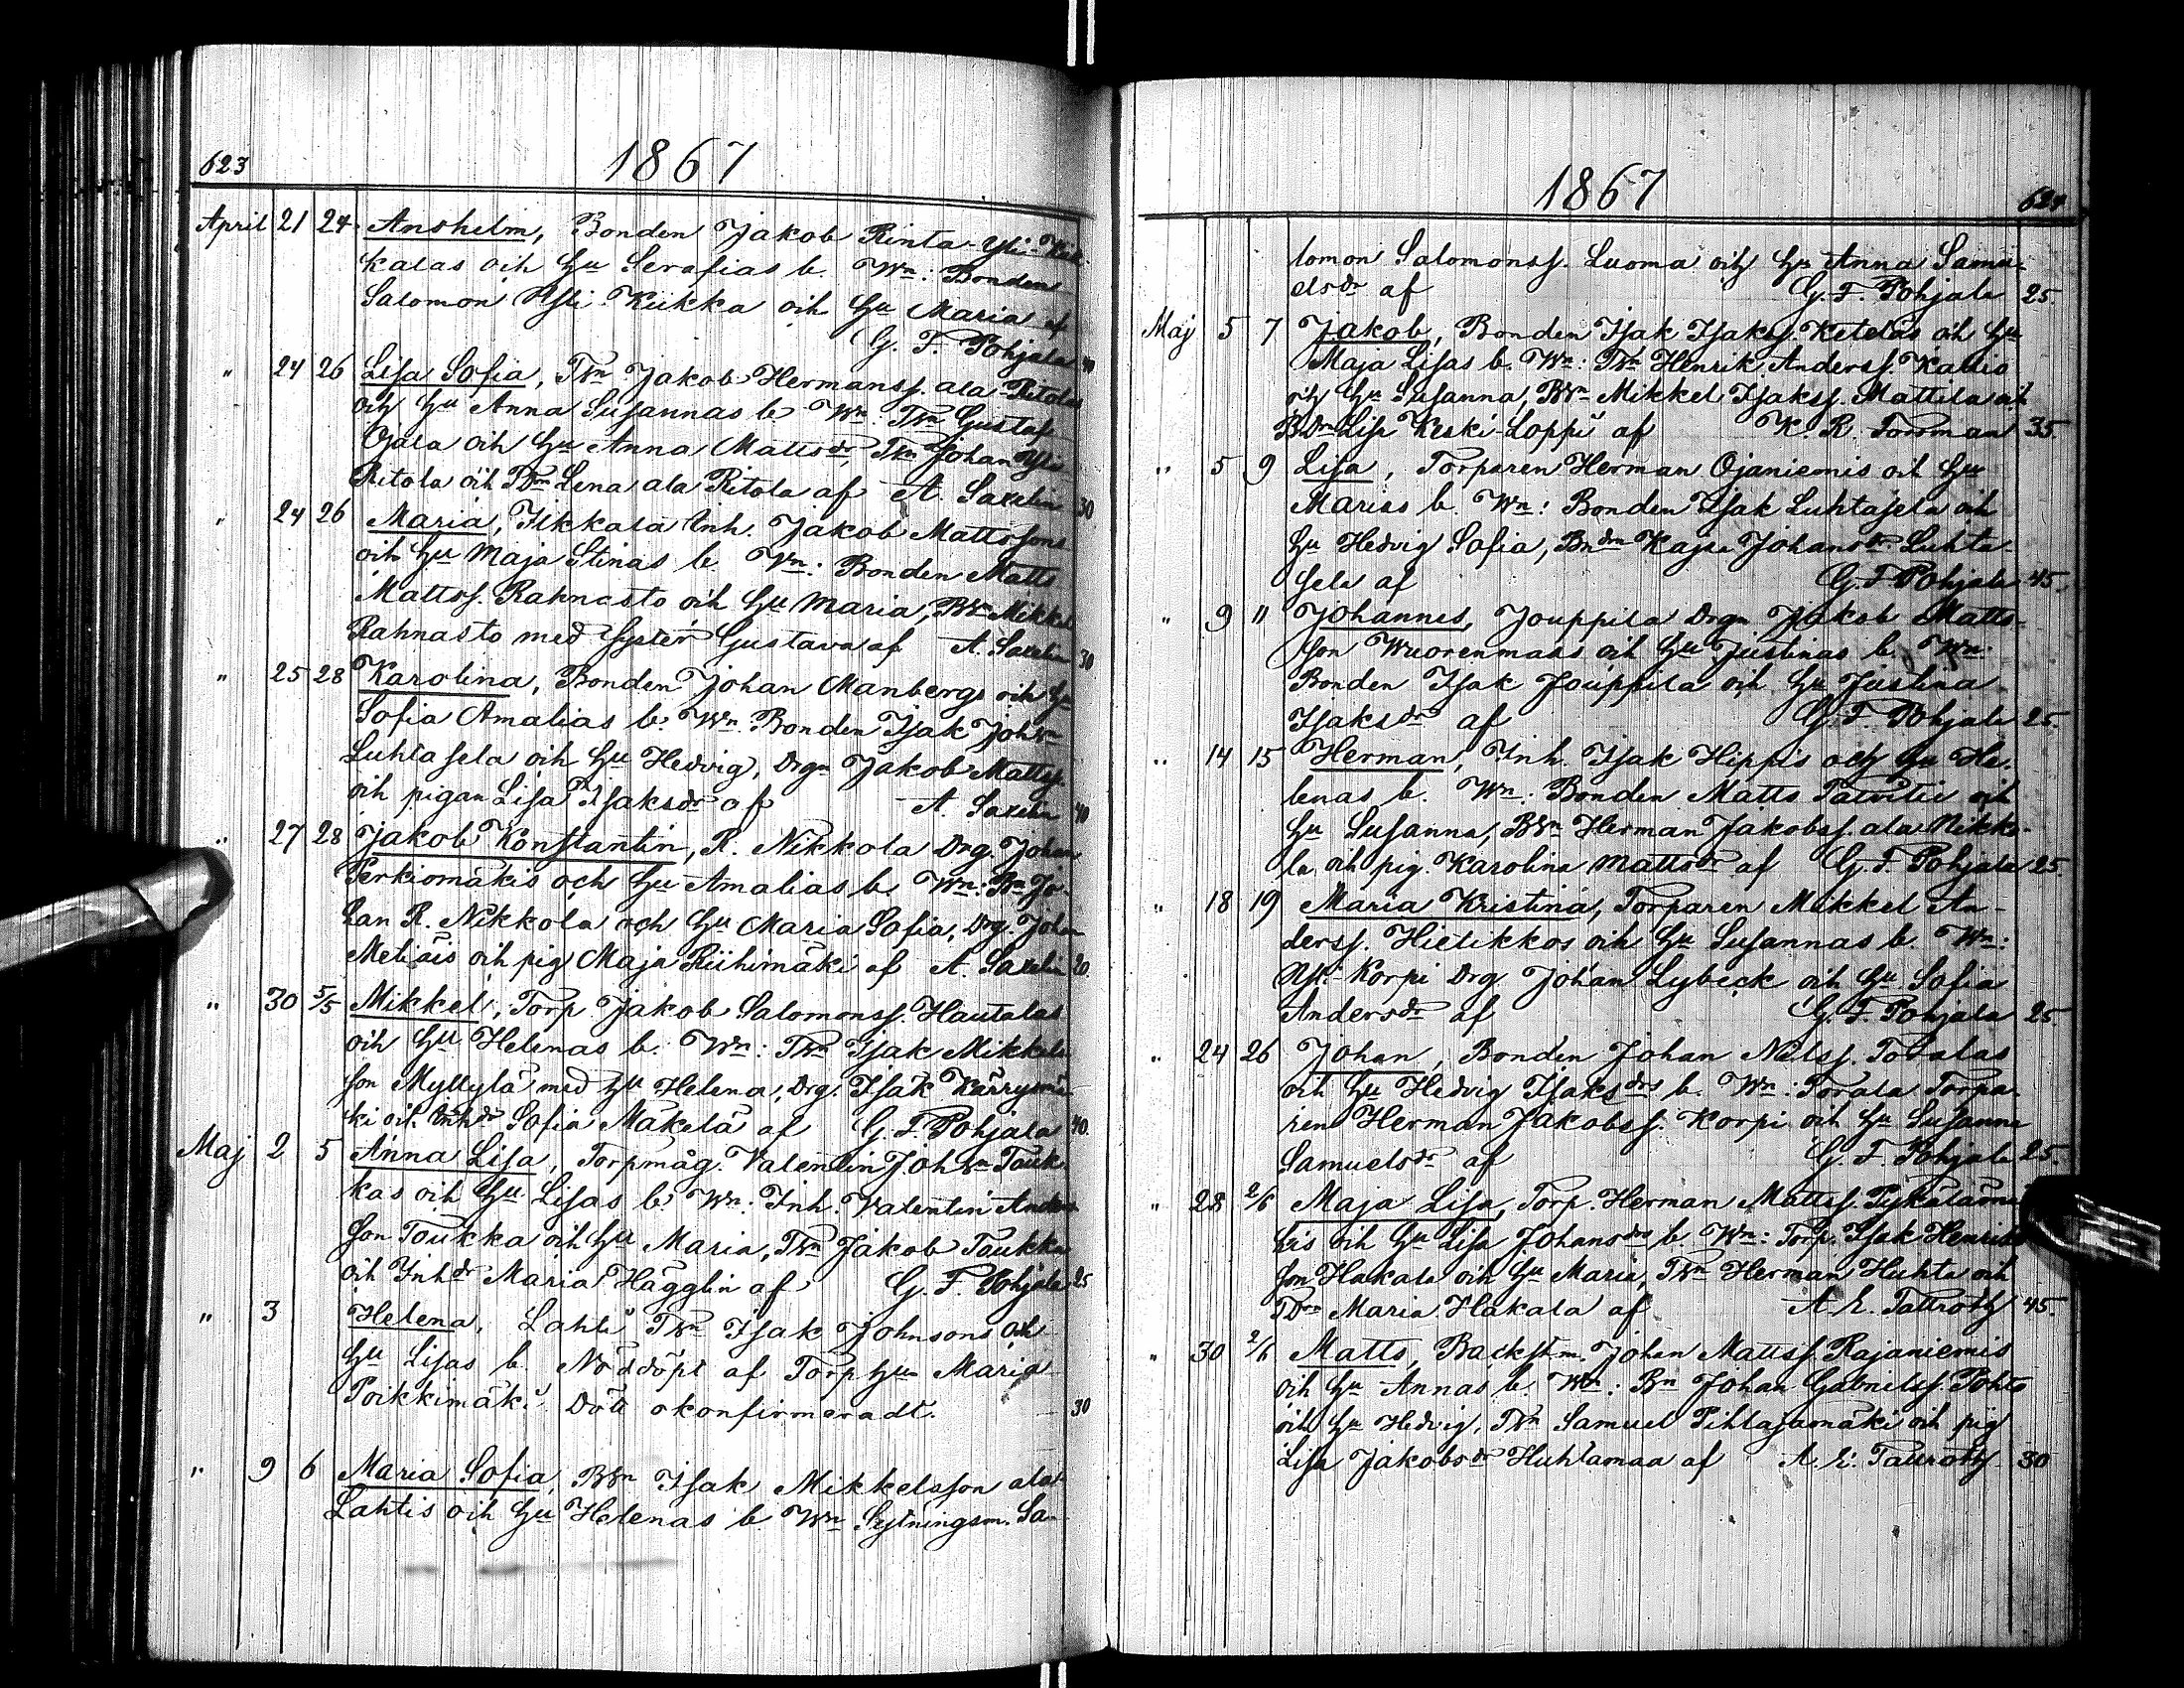 623 1867
April 21 24 Anshelm, Bonden Jakob Rinta-Yli-Kik-
kalas och Hu Serafias b. Wn: Bonden
Salomon Yli-Kiikka och Hu Maria af
G. F. Pohjala 40
" 24 26 Lisa Sofia, Tbn Jakob Hermanss. ala-Ritolas
och Hu Anna Susannas b. Wn: Tbn Gustaf
Ojala och Hu Anna Mattsdr, Tbn Johan Yli-
Ritola och TDm Lena ala Ritola af A. Saxelin 30
" 24 26 Maria, Inh. Jakob Mattssons
och Hu Maja Stinas b. Wn: Bonden Matts
Mattss. Rahnasto och Hu Maria, Bbn Mikkel
Rahnasto med syster Gustava af A. Saxelin 30
" 25 28 Karolina, Bonden Johan Manbergs och Hu
Sofia Amalias b. Wn: Bonden Isak Joh
Luhtasela och Hu Hedvig, Drgn Jakob Mattss.
och pigan Lisa Isaksdr af A. Saxelin 40
" 27 28 Jakob Konstantin, R. Nikkola Drg. Johan
Perkiomäkis och Hu Amalias b. Wn: Bn Jo-
han R. Nikkola och Hu Maria Sofia, Drg. Johan
och pig Maja Riihimäki af A. Saxelin 20.
" 30 5/5 Mikkel, Torp. Jakob Salomonss. Hautalas
och Hu Helenas b. Wn: Tbn Isak Mikkels-
son Myllylä med Hu Helena, Drg. Isak Kärrymä-
ki och Inhdr Sofia Mäkelä af G. F. Pohjala 40.
Maj 2 5 Anna Lisa, Torpmåg. Valentin Joh Touk-
kas och Hu Lisas b. Wn: Inh. Valentin Anders-
son Toukka och Hu Maria, Tbn Jakob Toukka
och Inhdr Maria Hägglin af G. F. Pohjala 25
" 3 Helena, Lahti Tbn Isak Johnsons och
Hu Lisas b. Nöddöpt af Torp hu Maria
Poikkimäki. Dött okonfirmeradt. 30
" 9 6 Maria Sofia, Bbn Isak Mikkelsson ala-
Lahtis och Hu Helenas b. Wn Sytningsm. Sa-
1867 624
lomon Salomonss. Luoma och Hu Anna Samu-
elsdr af G. F. Pohjala 25
Maj 5 7 Jakob, Bonden Isak Isakss. Ketelas och Hu
Maja Lisas b. Wn: Tbn Henrik Anderss. Kallio
och Hu Susanna, Bbn Mikkel Isakss. Mattila och
BDm Lisa Keski-Loppi af K. R. Forsman 35.
" 5 9 Lisa, Torparen Herman Ojaniemis och Hu
Marias b. Wn: Bonden Isak Luhtasela och
Hu Hedvig Sofia, Bndm Kajsa Johansdr Luhta-
sela af G. F. Pohjala 45.
" 9 11 Johannes, Jouppila Drgn Jakob Matts-
son Wuorenmaas och Hu Justinas b. Wn:
Bonden Isak Jouppila och Hu Justina
Isaksdr af G. F. Pohjala 25.
" 14 15 Herman, Inh. Isak Hippis och Hu He-
lenas b. Wn: Bonden Matts och
Hu Susanna, Bbn Herman Jakobss. ala Nikko-
la och pig. Karolina Mattsdr af G. F. Pohjala 25.
" 18 19 Maria Kristina, Torparen Mikkel An-
derss. Hietikkos och Hu Susannas b. Wn:
Yli-Korpi Drg Johan Lybeck och Hu Sofia
Andersdr af G. F. Pohjala 25.
" 24 26 Johan, Bonden Johan Nilss. Toralas
och Hu Hedvig Isaksdrs b. Wn: Torala Torpa-
ren Herman Jakobss. Korpi och Hu Susanna
Samuelsdr af G. F. Pohjala 25.
" 28 2/6 Maja Lisa, Torp. Herman Mattss. Pykälämä-
kis och Hu Lisa Johansdrs b. Wn: Torp. Isak Henriks-
son Hakala och Hu Maria, Tbn Herman Huhta och
TDm Maria Hakala af A. E. Tallroth 45.
" 30 2/6 Matts, Backstm. Johan Mattss. Rajaniemis
och Hu Annas b. Wn: Bn Johan Gabrielss. Pohto
och Hu Hedvig, Tbn Samuel Pihlajamäki och pig
Lisa Jakobsdr Huhtamaa af A. E. Tallroth 30